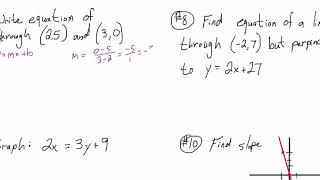 Write equation of
through (2,5) and (3,0)
y=mx+b m = 0-5/3-2 = -5/1 = -5
#8 Find equation of a li
through (-2,7) but perpe
to y=2x+27
Graph: 2x = 3y+9
#10 Find slope